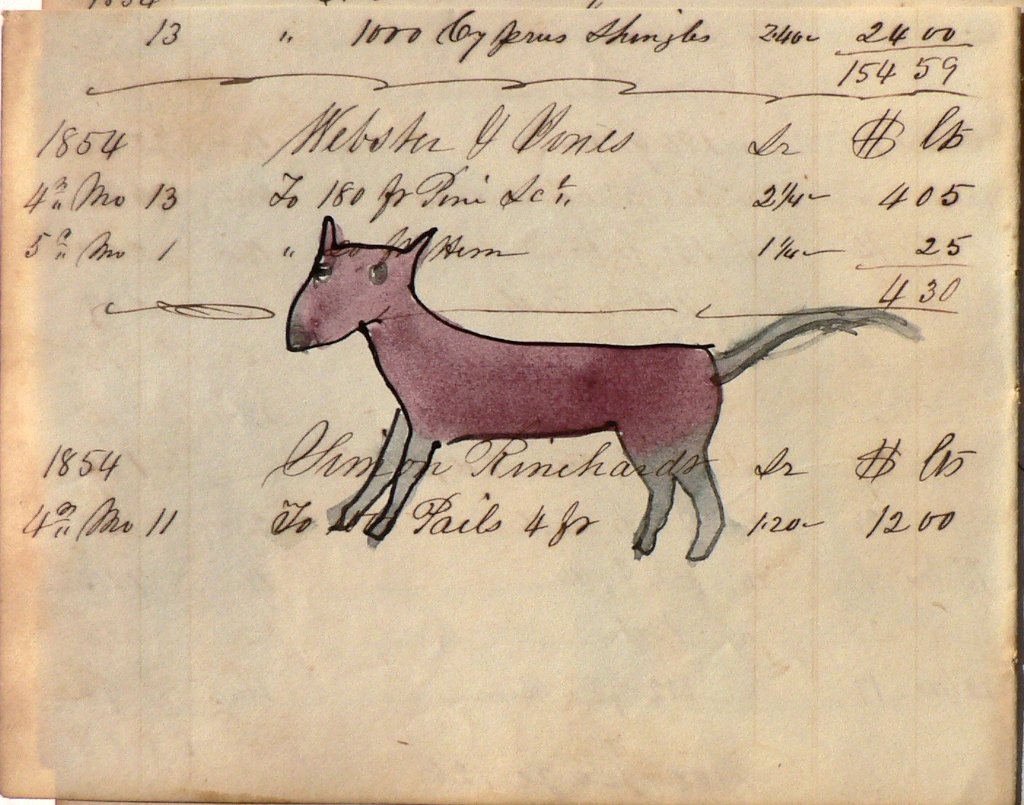 1854
13 " 1000 Cyprus Shingles 2.40 24 00
154 59
1854 Webster & Jones Dr $ Cts
4th Mo 13 To 180 fr Pine Sct 2 1/4 4 05
5th Mo 1 " 20 fr Hem 1 1/4 25
4 30
1854 Simon Rinehards Dr $ Cts
4th Mo 11 To 100 Pails 4 fr 1.20 12 00